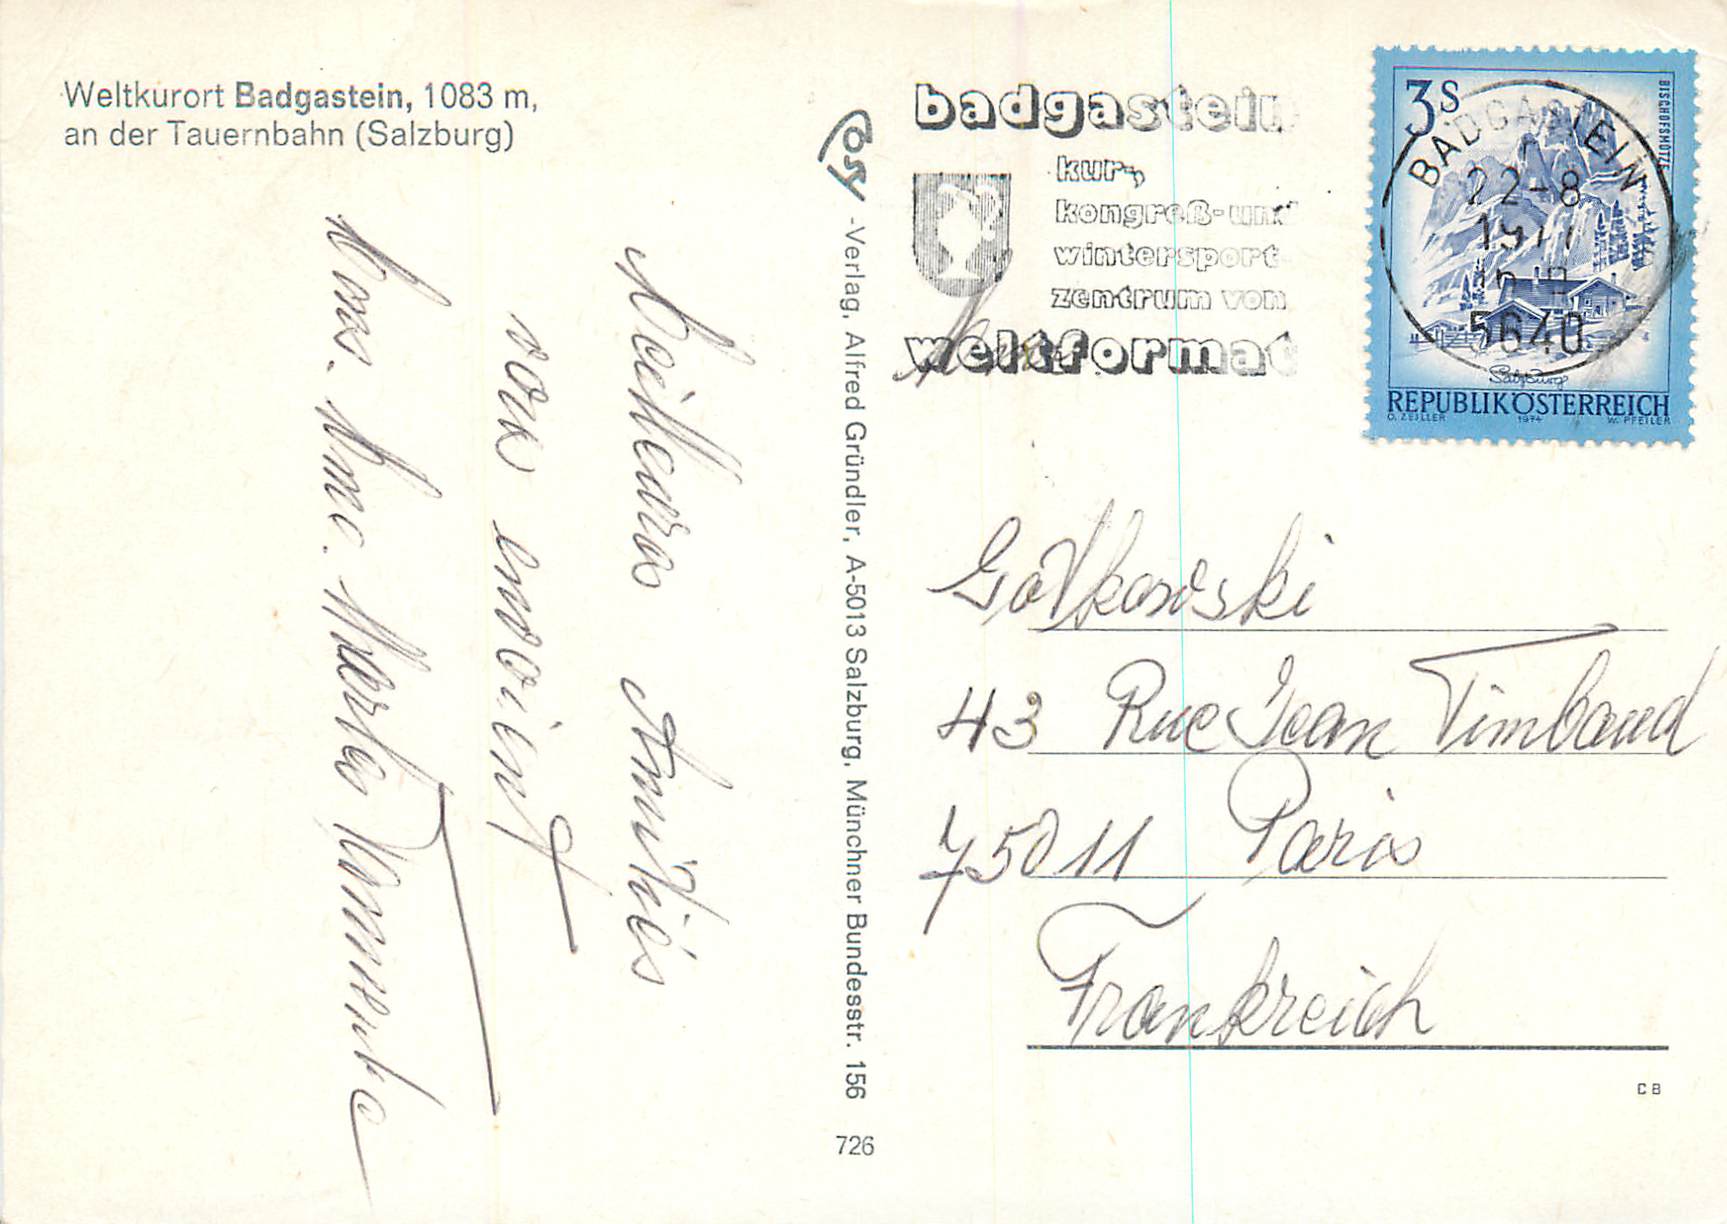 Weltkurort Badgastein, 1083 m,
an der Tauernbahn (Salzburg)
Meilleures Amitiés
vous envoient
Cossy -Verlag, Alfred Gründler, A-5013 Salzburg, Münchner Bundesstr. 156
726
badgastein
kur-,
kongreß- und
wintersport
zentrum von
weltformat
3S
BISCHOFSMÜTZE
BADGASTEIN
22-8
1977
5640
Salzburg
REPUBLIK ÖSTERREICH
O. ZEILLER 1974 W. PFEILER
Gotkowski
43 Rue Jean Timbaud
75011 Paris
Frankreich
CB